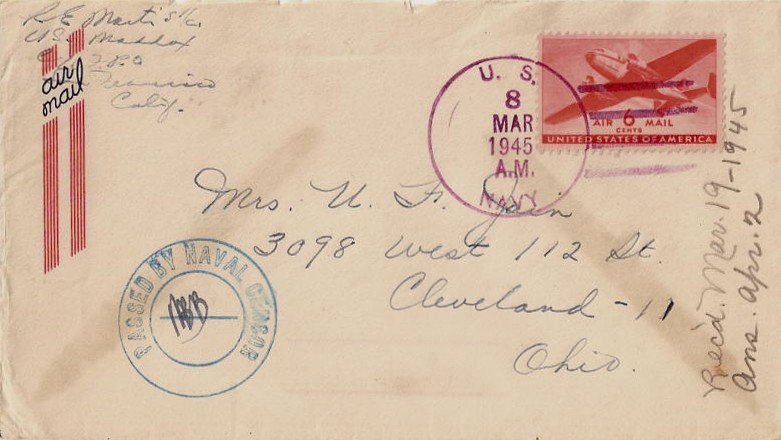 R.E. Marti S1/c.
U.S.S. Maddox
F.P.O.
San Francisco
Calif.
air
mail
U. S.
8
MAR
1945
A.M.
NAVY
AIR 6 MAIL
CENTS
UNITED STATES OF AMERICA
Mrs. N. F. Jain
3098 West 112 St.
Cleveland - 11
Ohio.
PASSED BY NAVAL CENSOR
Rec'd. Mar. 19-1945
Ans. Apr. 2